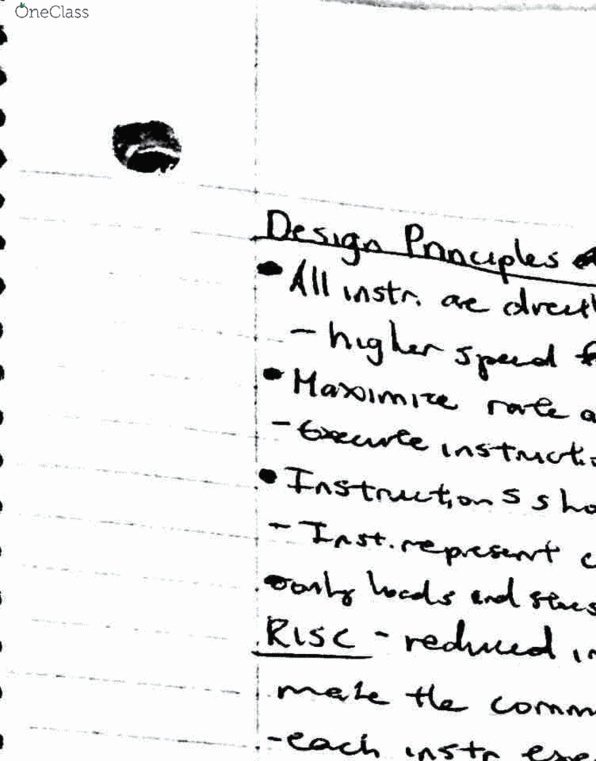 OneClass
Design Principles
• All instr. are directl
- higher speed f
• Maximize rate o
- Execute instructi
• Instructions sho
- Inst. represent c
• only loads and stores
RISC - reduced in
make the comm
- each instr exe